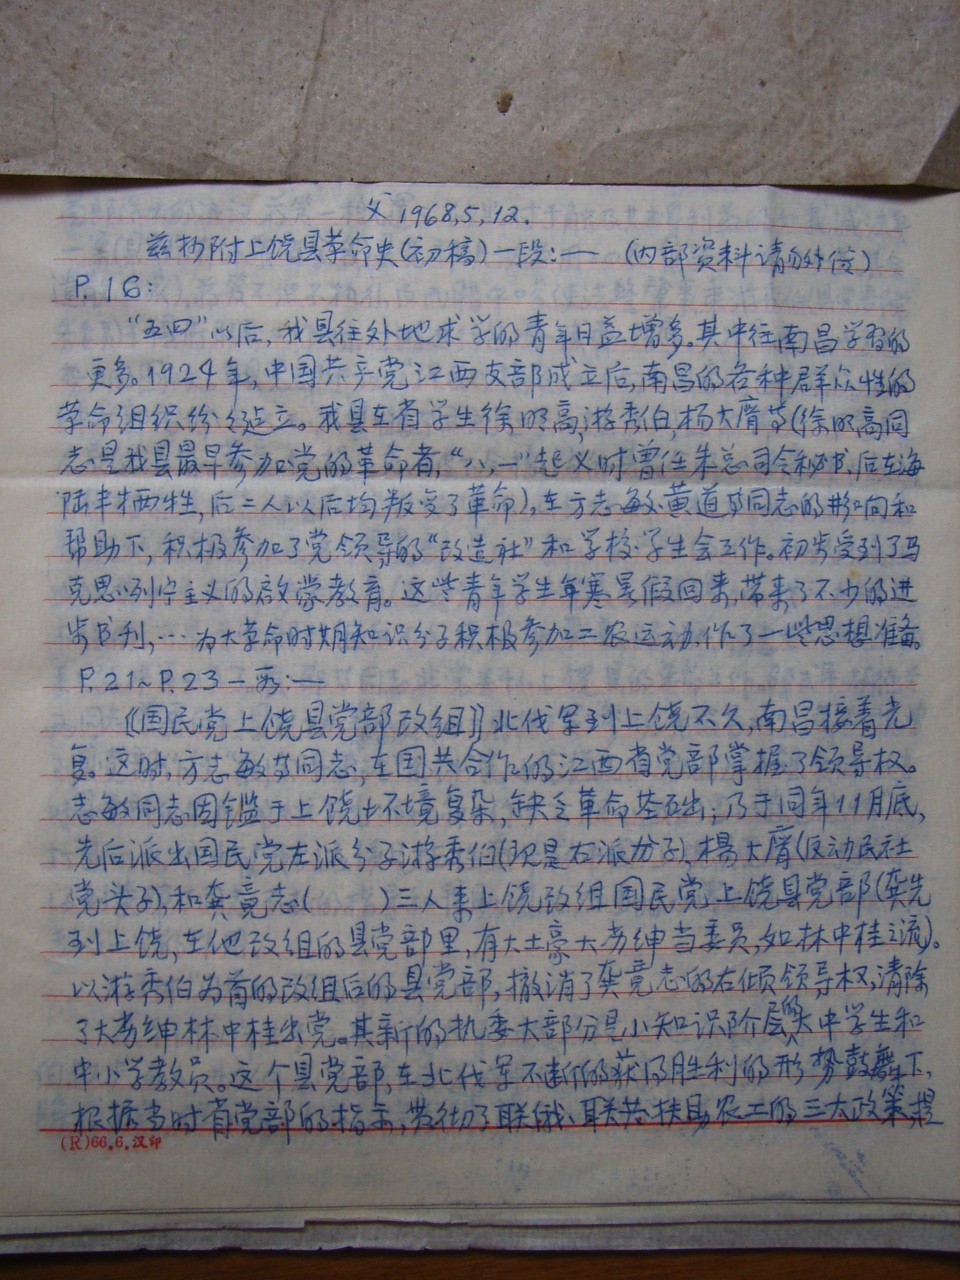 父 1968,5,12.
兹抄附上饶县革命史(初稿)一段:— (内部资料请勿外传)
P.16:
"五四"以后,我县往外地求学的青年日益增多。其中往南昌学习的
更多。1924年,中国共产党江西支部成立后,南昌的各种群众性的
革命组织纷纷建立。我县在省学生徐明高,游秀伯,杨大膺等(徐明高同
志是我县最早参加党的革命者,"八,一"起义时曾任朱总司令秘书,后在海
陆丰牺牲,后二人以后均叛变了革命),在方志敏、黄道等同志的影响和
帮助下,积极参加了党领导的"改造社"和学校学生会工作。初步受到了马
克思列宁主义的启蒙教育。这些青年学生年寒暑假回来,带来了不少的进
步书刊,…为大革命时期知识分子积极参加工农运动,作了一些思想准备。
P.21~P.23一段:—
《国民党上饶县党部改组》北伐军到上饶不久,南昌接着光
复。这时,方志敏等同志,在国共合作的江西省党部掌握了领导权。
志敏同志因鉴于上饶环境复杂,缺乏革命基础;乃于同年11月底,
先后派出国民党左派分子游秀伯(现是右派分子),楊大膺(反动民社
党头子),和龚竟志( )三人来上饶改组国民党上饶县党部(龚先
到上饶,在他改组的县党部里,有大土豪大劣绅当委员,如林中桂之流)。
以游秀伯为首的改组后的县党部,撤消了龚竟志的右倾领导权,清除
了大劣绅林中桂出党。其新的执委大部分是小知识阶层的大中学生和
中小学教员。这个县党部,在北伐军不断的获得胜利的形势鼓舞下,
根据当时省党部的指示,贯彻了联俄、联共扶助农工的三大政策,提
(R)66.6.汉印